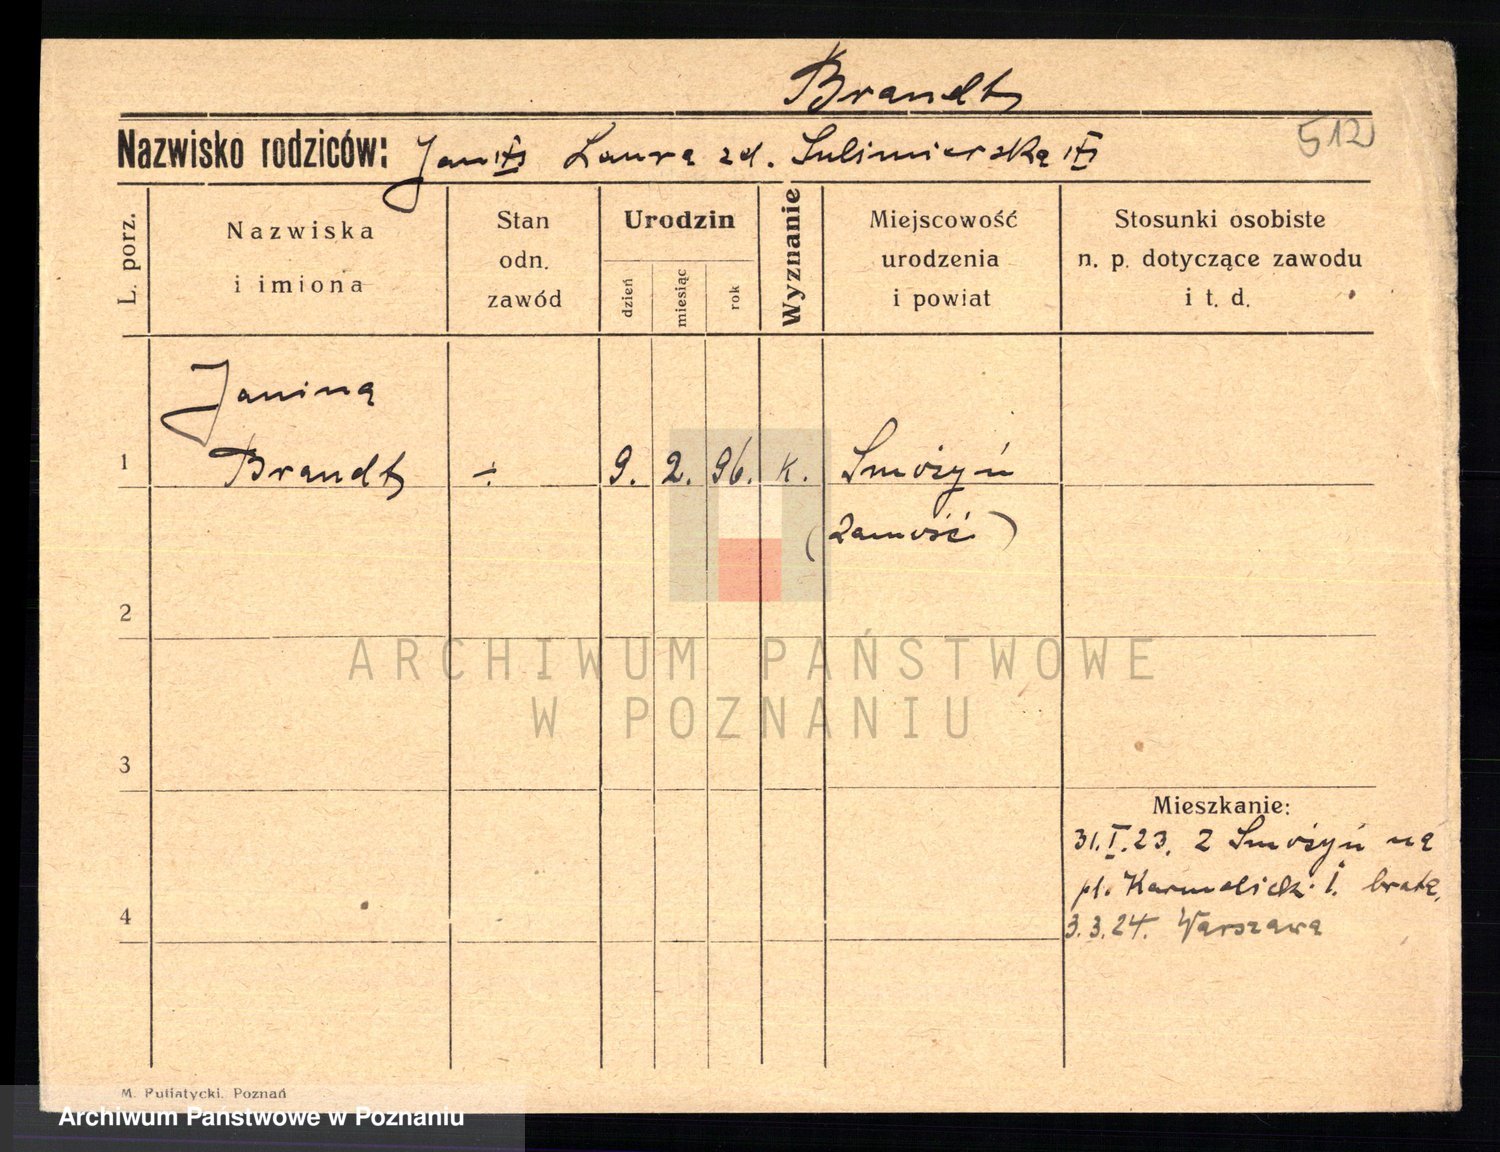 Brandt
512
Nazwisko rodziców: Jan Laura zd. Sulimierska
L. porz.
Nazwiska
i imiona
Stan
odn.
zawód
Urodzin
dzień
miesiąc
rok
Wyznanie
Miejscowość
urodzenia
i powiat
Stosunki osobiste
n. p. dotyczące zawodu
i t. d.
Janina
1 Brandt ÷ 9. 2. 96. k. Smożyń
(Zamość)
2
ARCHIWUM PAŃSTWOWE
W POZNANIU
3
Mieszkanie:
31.I.23. z Smożyń na
pl. Karmelicki 1. brata,
4 3.3.24. Warszawa
M. Putiatycki, Poznań
Archiwum Państwowe w Poznaniu